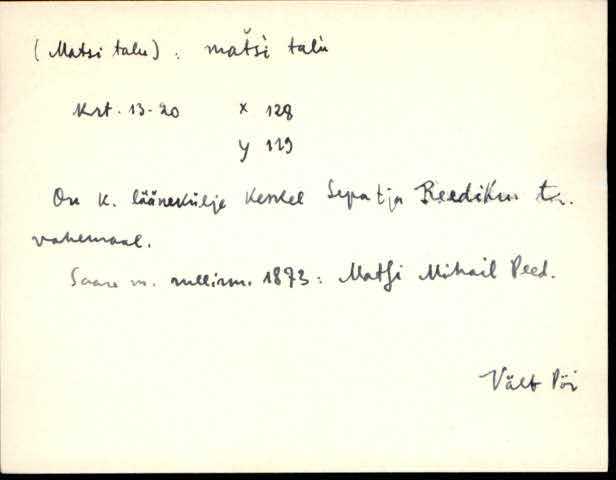 (Matsi talu) : mat̆si talu
Krt. 13-20 x 128
y 119
On k. läänekülje keskel Sepa t ja Reediku t.
vahemaal.
Saare m. rullirm. 1873: Matsi Mihail Peed.
Vält Pöi